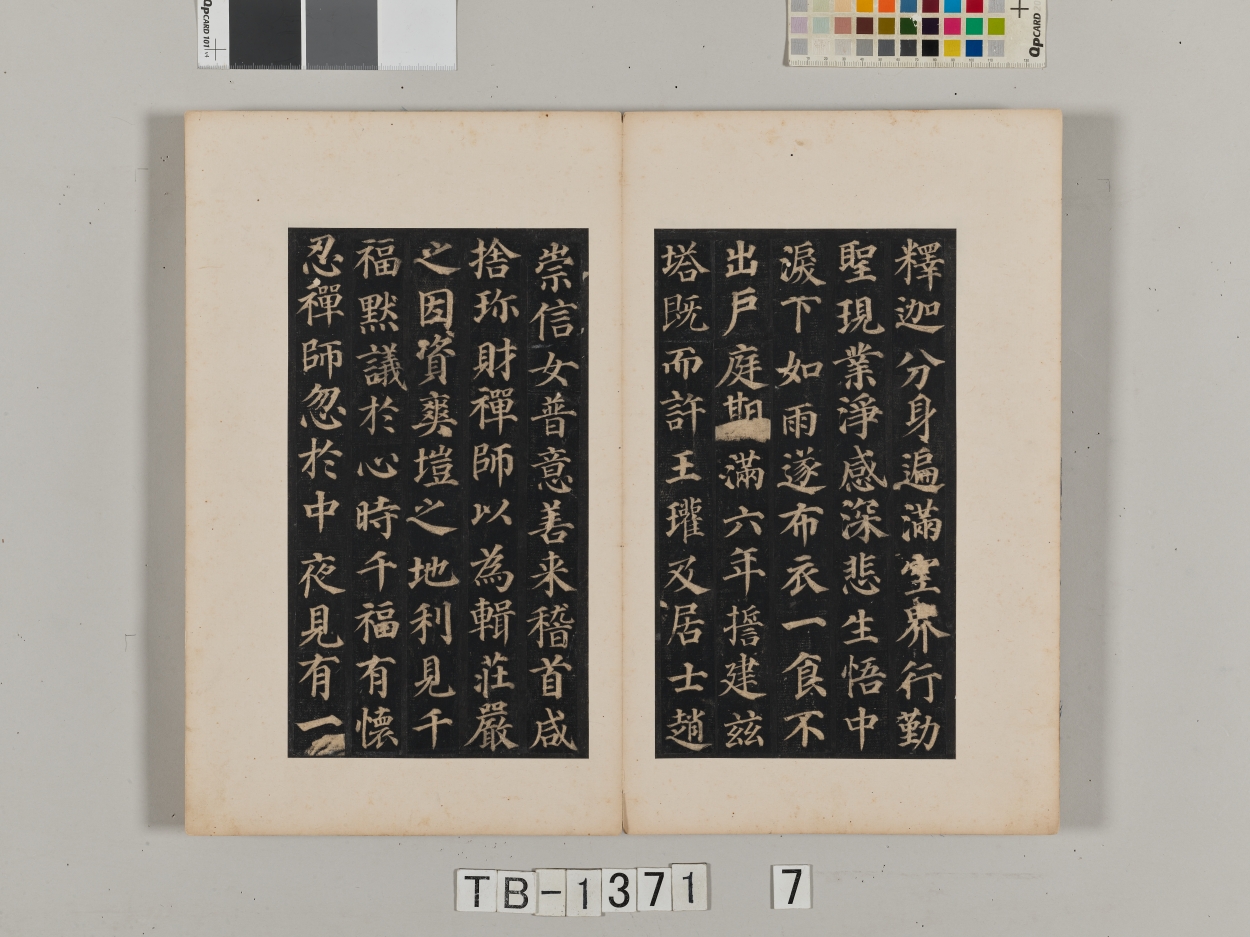 釋迦分身遍滿空界行勤
聖現業淨感深悲生悟中
淚下如雨遂布衣一食不
出戶庭期滿六年誓建茲
塔既而許王瓘及居士趙
崇信女普意善来稽首咸
捨珎財禪師以為輯莊嚴
之因資爽塏之地利見千
福默議於心時千福有懷
忍禪師忽於中夜見有一
QPCARD 101 v4
QPCARD
TB-1371 7